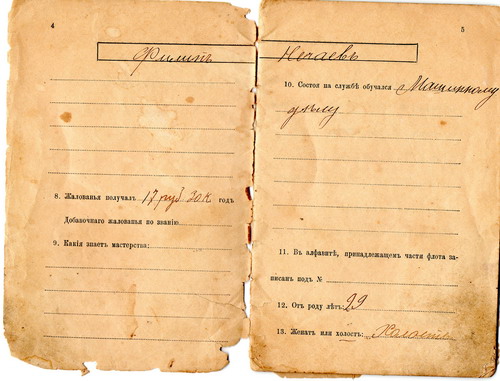 4
Филипъ
8. Жалованья получал 17 руб 30 к годъ
Добавочнаго жалованья по званію
9. Какія знаетъ мастерства:
5
Нечаевъ
10. Состоя на службѣ обучался Машинному
дѣлу
11. Въ алфавитѣ, принадлежащемъ части флота за-
писанъ подъ №
12. Отъ роду лѣтъ: 29
13. Женатъ или холостъ: Холостъ